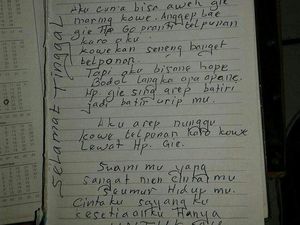 Aku cuma bisa aweh gie
maring kowe. Anggep bae
gie Hp Go pranti telpunan
karo aku.
kowekan seneng banget
telponan.
Tapi aku bisane hope
Bodol langka ora apane.
Hp. gie sing arep batiri
jadi batir urip mu.
Aku arep nunggu
kowe telpunan karo kowe
Lewat Hp. Gie.
Suami mu yang
sangat men cintai mu
Seumur Hidup mu.
Cintaku sayang ku
kesetiaanku Hanya
UNTUK
SELAMAT TINGGAL